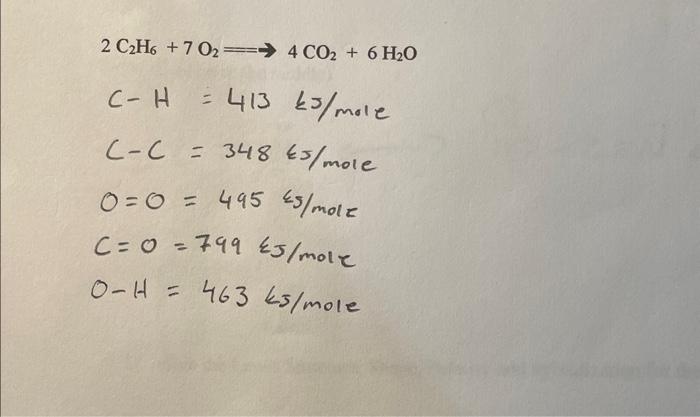 2 C₂H₆ + 7 O₂ ===➔ 4 CO₂ + 6 H₂O
C-H = 413 kJ/mole
C-C = 348 kJ/mole
O=O = 495 kJ/mole
C=O = 799 kJ/mole
O-H = 463 kJ/mole